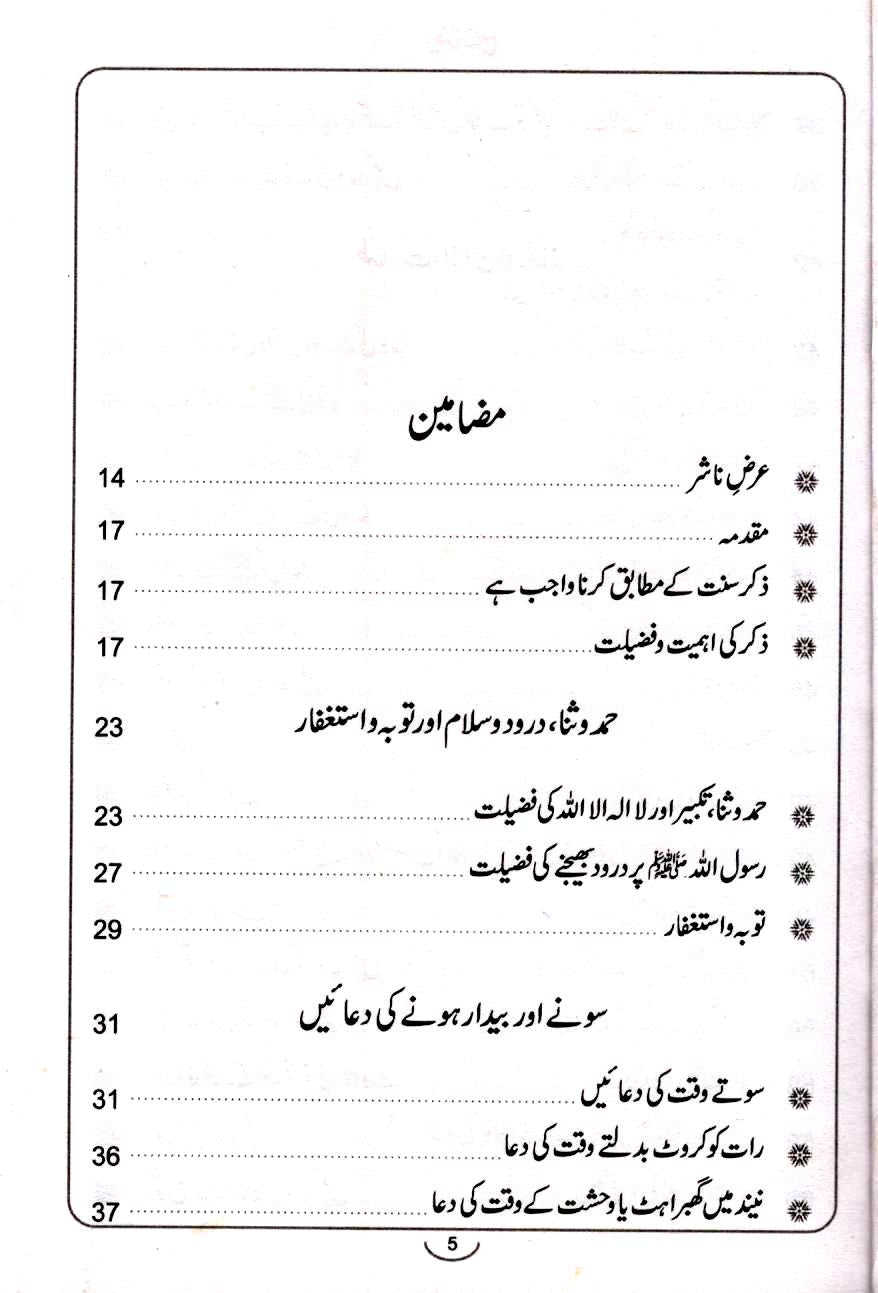 مضامین
عرضِ ناشر 14
مقدمہ 17
ذکر سنت کے مطابق کرنا واجب ہے 17
ذکر کی اہمیت و فضیلت 17
حمد و ثنا، درود و سلام اور توبہ و استغفار 23
حمد و ثنا، تکبیر اور لا الہ الا اللہ کی فضیلت 23
رسول اللہ ﷺ پر درود بھیجنے کی فضیلت 27
توبہ و استغفار 29
سونے اور بیدار ہونے کی دعائیں 31
سوتے وقت کی دعائیں 31
رات کو کروٹ بدلتے وقت کی دعا 36
نیند میں گھبراہٹ یا وحشت کے وقت کی دعا 37
5